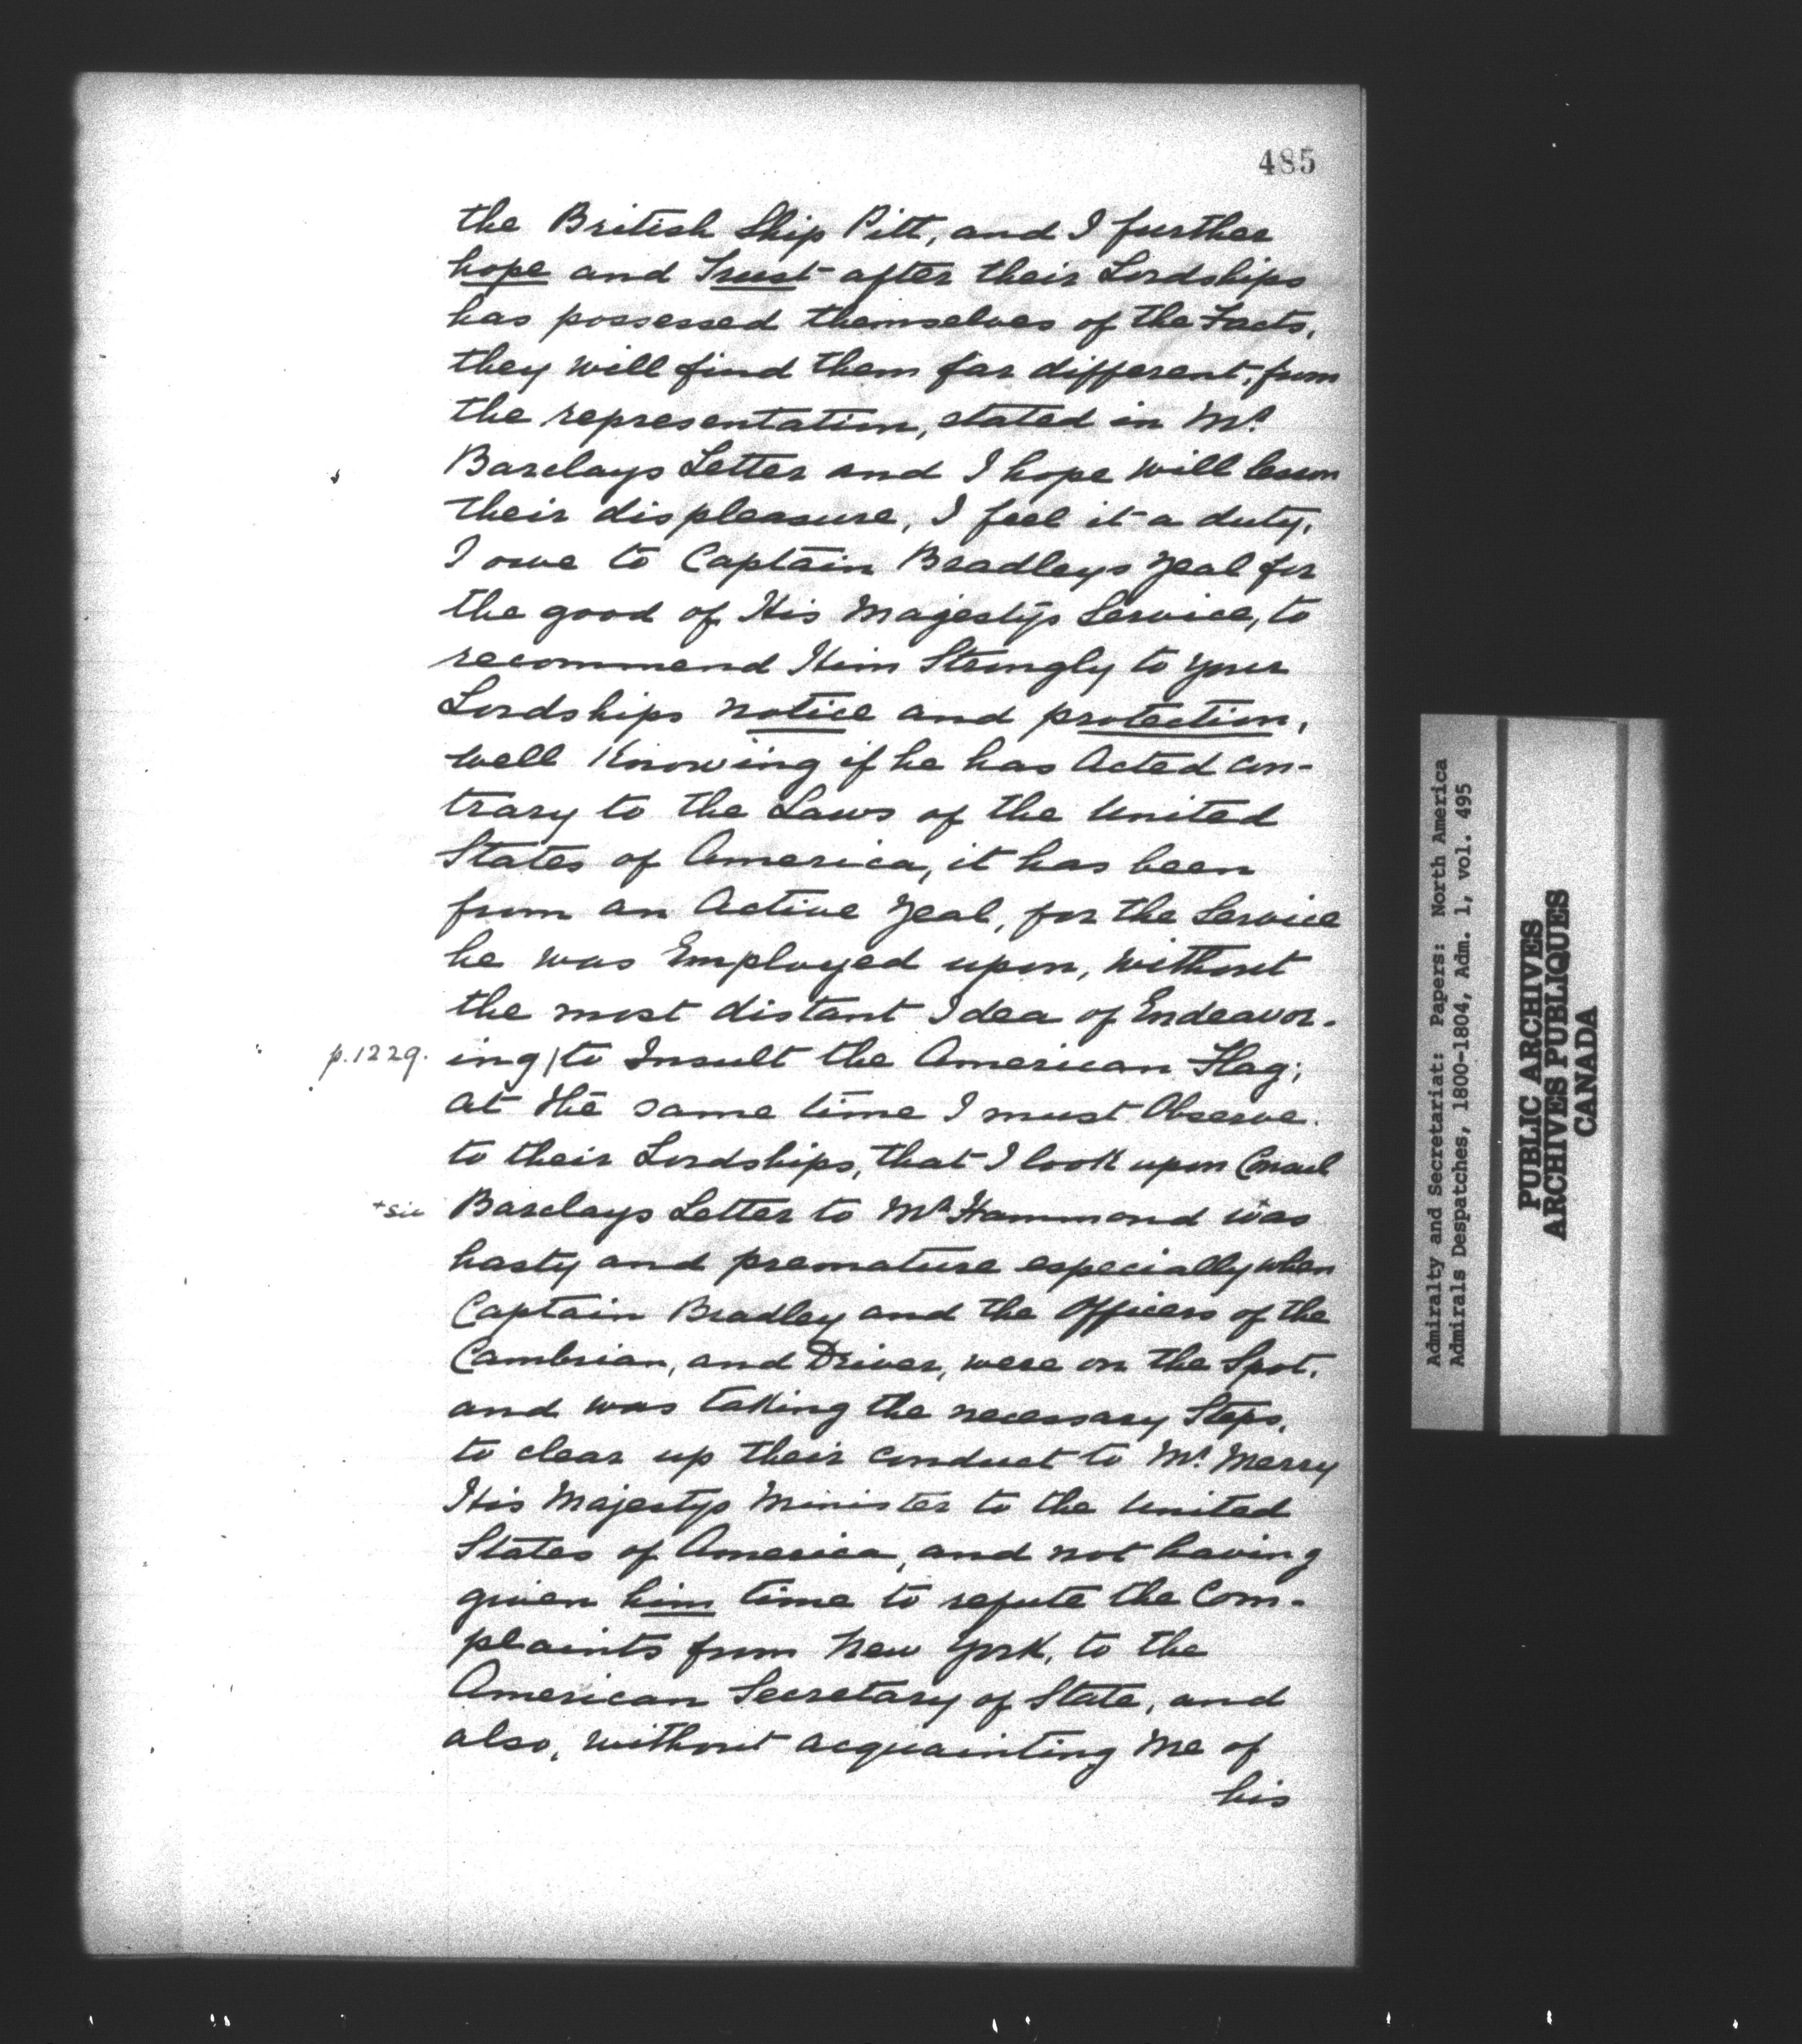 485
the British Ship Pitt, and I further
hope and Trust after their Lordships
has possessed themselves of the Facts,
they will find them far different, from
the representation, stated in Mr.
Barclays Letter and I hope will lessen
their displeasure, I feel it a duty,
I owe to Captain Bradleys zeal for
the good of His Majestys Service, to
recommend Him Strongly to your
Lordships notice and protection,
well Knowing if he has Acted con-
trary to the Laws of the United
States of America, it has been
from an Active zeal, for the Service
he was Employed upon, without
the most distant Idea of Endeavor-
p.1229. ing | to Insult the American Flag;
at the same time I must Observe
to their Lordships, that I look upon Consul
+sic Barclays Letter to Mr Hammond +was
hasty and premature especially when
Captain Bradley and the Officers of the
Cambrian, and Driver, were on the Spot,
and was taking the necessary Steps,
to clear up their conduct to Mr. Merry
His Majestys Minister to the United
States of America, and not having
given him time to refute the Com-
plaints from New York, to the
American Secretary of State, and
also, without acquainting me of
his
Admiralty and Secretariat: Papers: North America
Admirals Despatches, 1800-1804, Adm. 1, vol. 495
PUBLIC ARCHIVES
ARCHIVES PUBLIQUES
CANADA